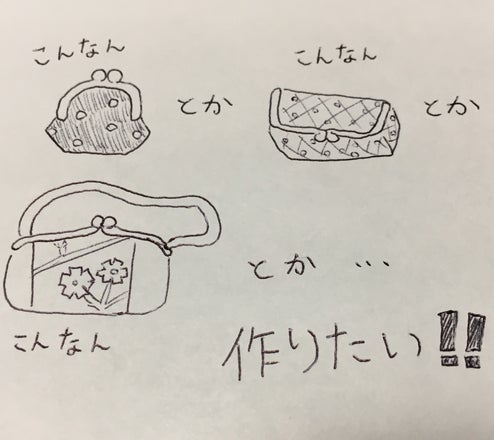 こんなん
とか
こんなん
とか
こんなん
とか …
作りたい!!